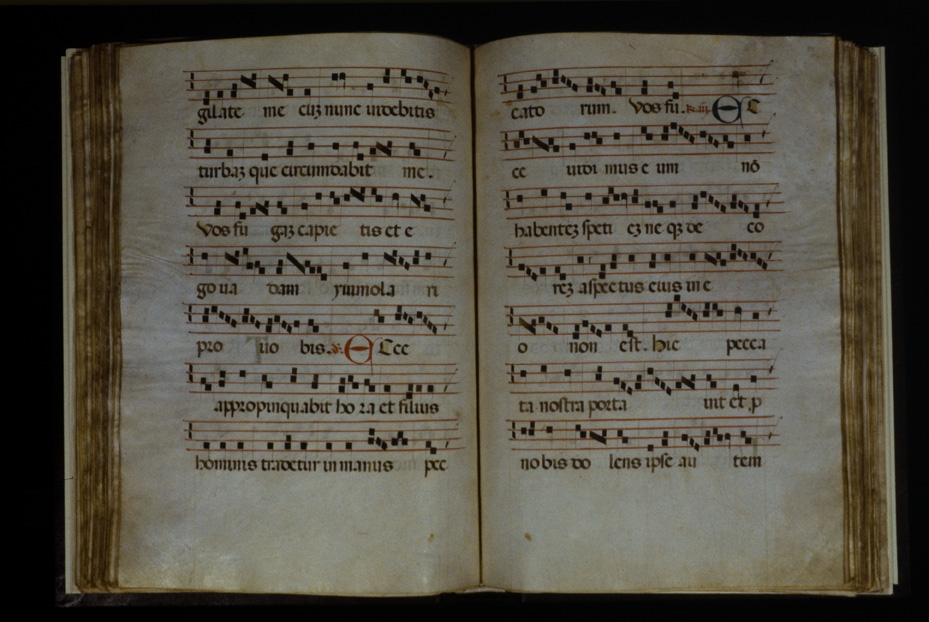 gilate me cuz nunc uidebitis
turbaz que circumdabit me.
Vos fu gaz capie tis et e
go ua dam ymmola ri
pro uo bis. ℣. ECce
appropinquabit ho ra et filius
hominis tradetur in manus pec
cato rum. Vos fu. R. iii. EC
ce uidi mus e um nō
habentez speti ez ne qz de co
rez aspectus eius in e
o non est. hic pecca
ta nostra porta uit et p
nobis do lens ipse au tem